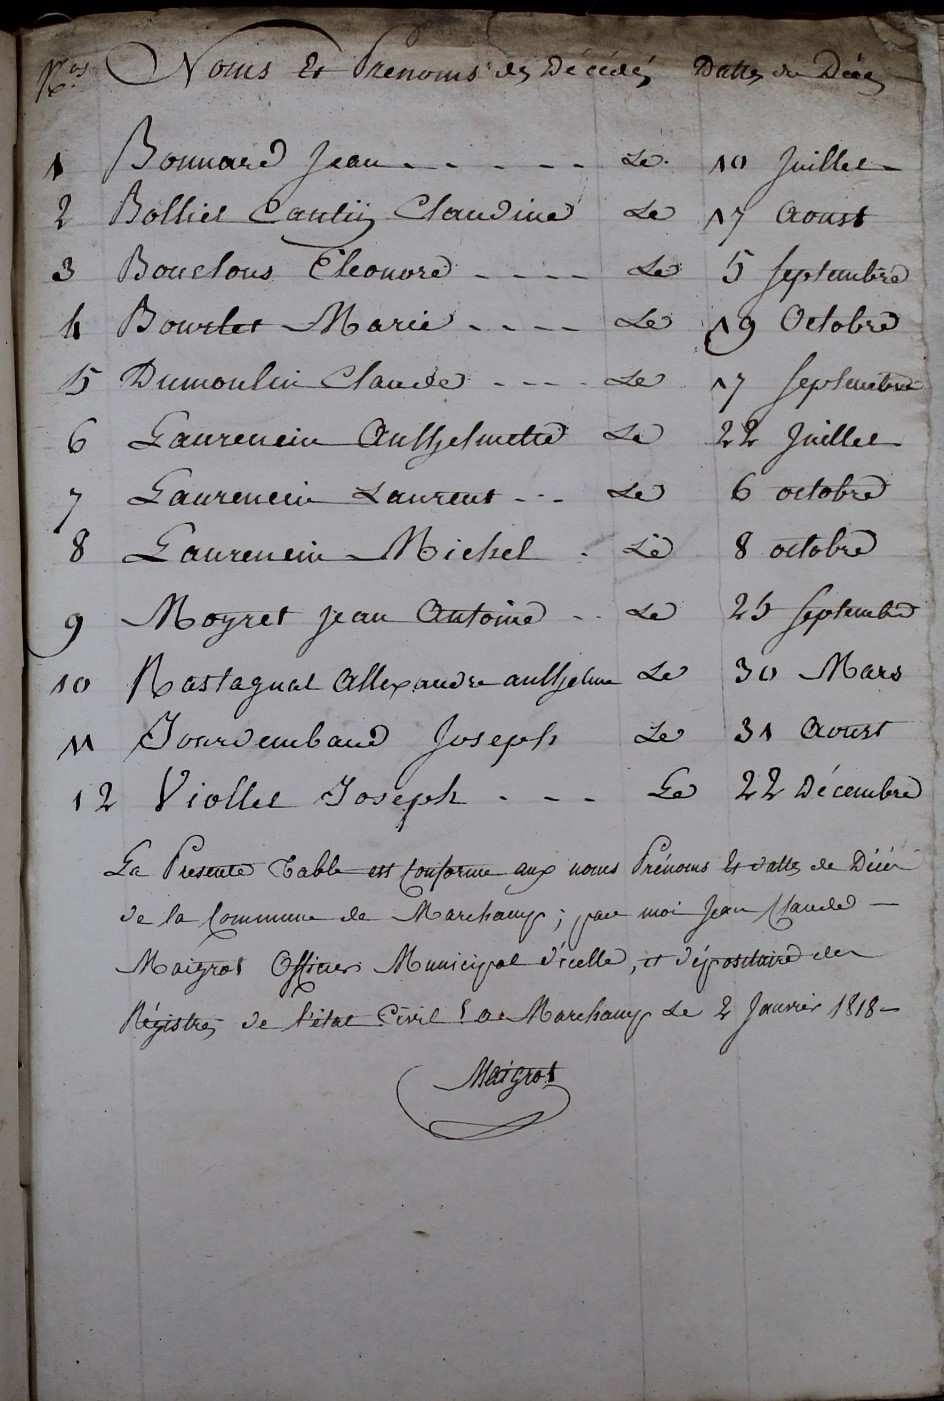 Nos Noms Et Prénoms des Décédés Dattes du Décès
1 Bonnard Jean - - - - - - Le 10 Juillet -
2 Bolliet Cantin Claudine Le 17 Aoust
3 Bouclous Eléonore - - - - Le 5 Septembre
4 Bourlet Marie - - - - Le 19 Octobre
5 Dumoulin Claude - - - - Le 17 Septembre
6 Laurencin Anthelmette Le 22 Juillet
7 Laurencin Laurent - - - Le 6 octobre
8 Laurencin Michel - Le 8 octobre
9 Moyret Jean Antoine - - Le 25 Septembre
10 Rastagnat Allexandre anthelme Le 30 Mars
11 Jourdembaud Joseph Le 31 Aoust
12 Viollet Joseph - - - Le 22 Décembre
La Présente Table est conforme aux noms Prénoms Et dattes de Décès
de la Commune de Marchamp ; par moi Jean Claude -
Maigrot Officier Municipal d'icelle, et dépositaire des
Régistres de l'état Civil a Marchamp Le 2 Janvier 1818 -
Maigrot